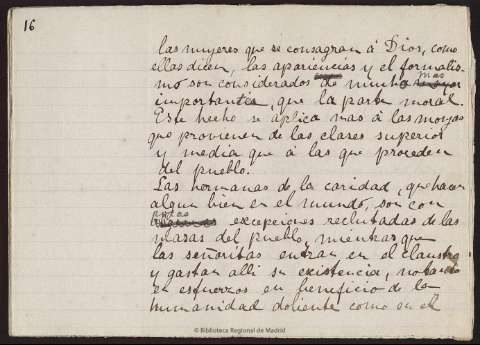 16
las mujeres que se consagran á Dios, como
ellas dicen, las apariencias y el formalis-
mo son considerados de mucha mas
importantcia, que la parte moral.
Este hecho se aplica mas á las monjas
que provienen de las clases superior
y media que á las que proceden
del pueblo.
Las hermanas de la caridad, que hacen
algun bien en el mundo, son con
raras excepciones reclutadas de las
masas del pueblo, mientras que
las señoritas entran en el claustro
y gastan alli su existencia, no tanto
en esfuerzos en beneficio de la
humanidad doliente como en el
© Biblioteca Regional de Madrid